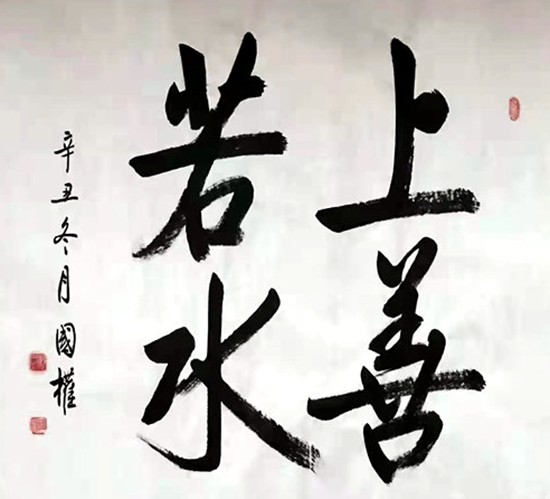 上善
若水
辛丑冬月國權